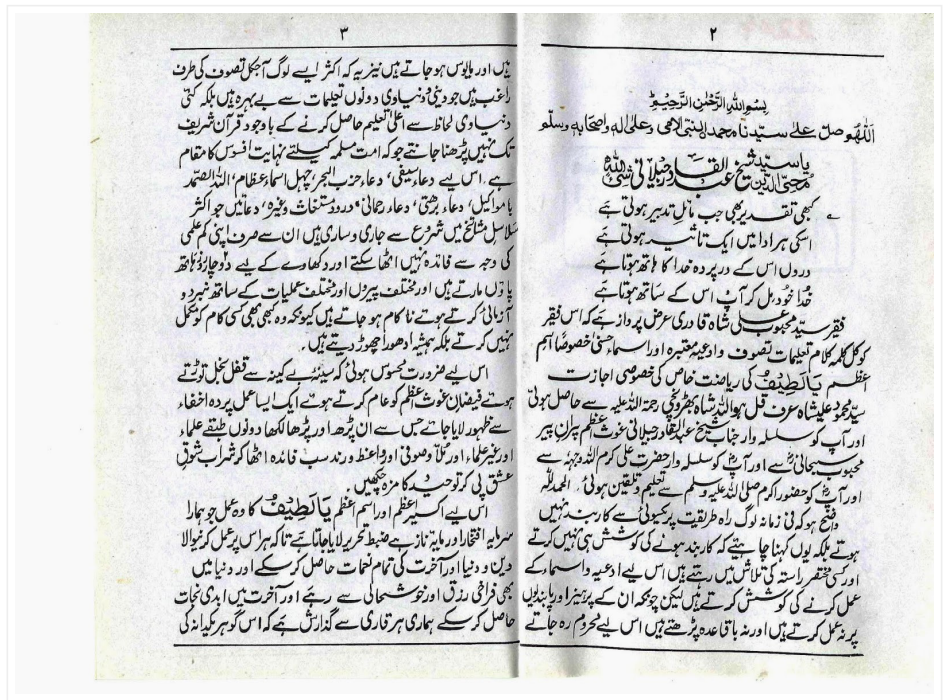 ۲
بِسْمِ اللهِ الرَّحْمٰنِ الرَّحِيْمِ
اَللّٰهُمَّ صل علے سیّدنا محمد النبی الامی وعلیٰ الہ واصحابہ وسلّم
یا سیّد شیخ عبد القادر جیلانی شیٔ للہ
محی الدین
کبھی تقدیر بھی جب مائل تدبیر ہوتی ہے
اسکی ہر ادا میں ایک تاثیر ہوتی ہے
دروں اس کے در پردہ خدا کا ہاتھ ہوتا ہے
خدا خود بل کر آپ اس کے ساتھ ہوتا ہے
فقیر سیّد محبوب علی شاہ قادری عرض پرداز ہے کہ اس فقیر
کو کل کلمہ کلام تعلیمات تصوف و ادعیہ معتبرہ اور اسماء حسنیٰ خصوصاً اسم
اعظم یَا لَطِیْفُ کی ریاضت خاص کی خصوصی اجازت
سیّد محمود علیشاہ عرف قل ہو اللہ شاہ بھڑونچی رحمۃ اللہ علیہ سے حاصل ہوئی
اور آپ کو سلسلہ وار جناب شیخ عبدالقادر جیلانی غوث اعظم پیران پیر
محبوب سبحانیؓ سے اور آپؓ کو سلسلہ وار حضرت علی کرم اللہ وجہہ سے
اور آپؓ کو حضور اکرم صلی اللہ علیہ وسلم سے تعلیم و تلقین ہوئی۔ الحمدللہ
واضح ہو کہ فی زمانہ لوگ راہ طریقیت پر یکسوئی سے کاربند نہیں
ہوتے بلکہ یوں کہنا چاہیئے کہ کاربند ہونے کی کوشش ہی نہیں کرتے
اور کسی مختصر راستہ کی تلاش میں رہتے ہیں اس لیے ادعیہ واسماء کے
عمل کرنے کی کوشش کرتے ہیں لیکن چونکہ ان کے پرہیز اور پابندیوں
پر نہ عمل کرتے ہیں اور نہ باقاعدہ پڑھتے ہیں اس لیے محروم رہ جاتے
۳
ہیں اور مایوس ہو جاتے ہیں نیز یہ کہ اکثر ایسے لوگ آجکل تصوف کی طرف
راغب ہیں جو دینی و دنیاوی دونوں تعلیمات سے بے بہرہ ہیں بلکہ کئی
دنیاوی لحاظ سے اعلیٰ تعلیم حاصل کرنے کے باوجود قرآن شریف
تک نہیں پڑھنا جانتے جو کہ امت مسلمہ کیلئے نہایت افسوس کا مقام
ہے۔ اس لیے دعاء سیفی، دعاء حزب البحر، چہل اسماء عظام، اللہ الصمد
با مواکیل، دعاء برھتی، دعاء رحمانی، درود مستغاث وغیرہ، دعائیں جو اکثر
سلاسل مشائخ میں شروع سے جاری و ساری ہیں ان سے صرف اپنی کم علمی
کی وجہ سے فائدہ نہیں اٹھا سکتے اور دکھاوے کے لیے دوچار روز ہاتھ
پاؤں مارتے ہیں اور مختلف پیروں اور مختلف عملیات کے ساتھ نبرد و
آزمائی کرتے ہوئے ناکام ہو جاتے ہیں کیونکہ وہ کبھی بھی کسی کام کو مکمل
نہیں کرتے بلکہ ہمیشہ ادھورا چھوڑ دیتے ہیں۔
اس لیے ضرورت محسوس ہوئی کہ سینۂ بے کینہ سے قفل بخل توڑتے
ہوئے فیضان غوث اعظم کو عام کرتے ہوئے ایک ایسا عمل پردہ اخفاء
سے ظہور لایا جائے جس سے ان پڑھ اور پڑھا لکھا دونوں طبقے علماء
اور غیر علماء اور ملّا و صوفی اور واعظ و رند سب فائدہ اٹھا کر شراب شوق
عشق پی کر توحید کا مزہ چکھیں۔
اس لیے اکسیر اعظم اور اسم اعظم یَا لَطِیْفُ کا وہ عمل جو ہمارا
سرمایہ افتخار اور مایۂ ناز ہے ضبط تحریر لایا جاتا ہے تاکہ ہر اس پر عمل کرنیوالا
دین و دنیا اور آخرت کی تمام نعمات حاصل کر سکے اور دنیا میں
بھی فراخی رزق اور خوشحالی سے رہے اور آخرت میں ابدی نجات
حاصل کر سکے ہماری ہر قاری سے گذارش ہے کہ اس گوہر یکدانہ کی